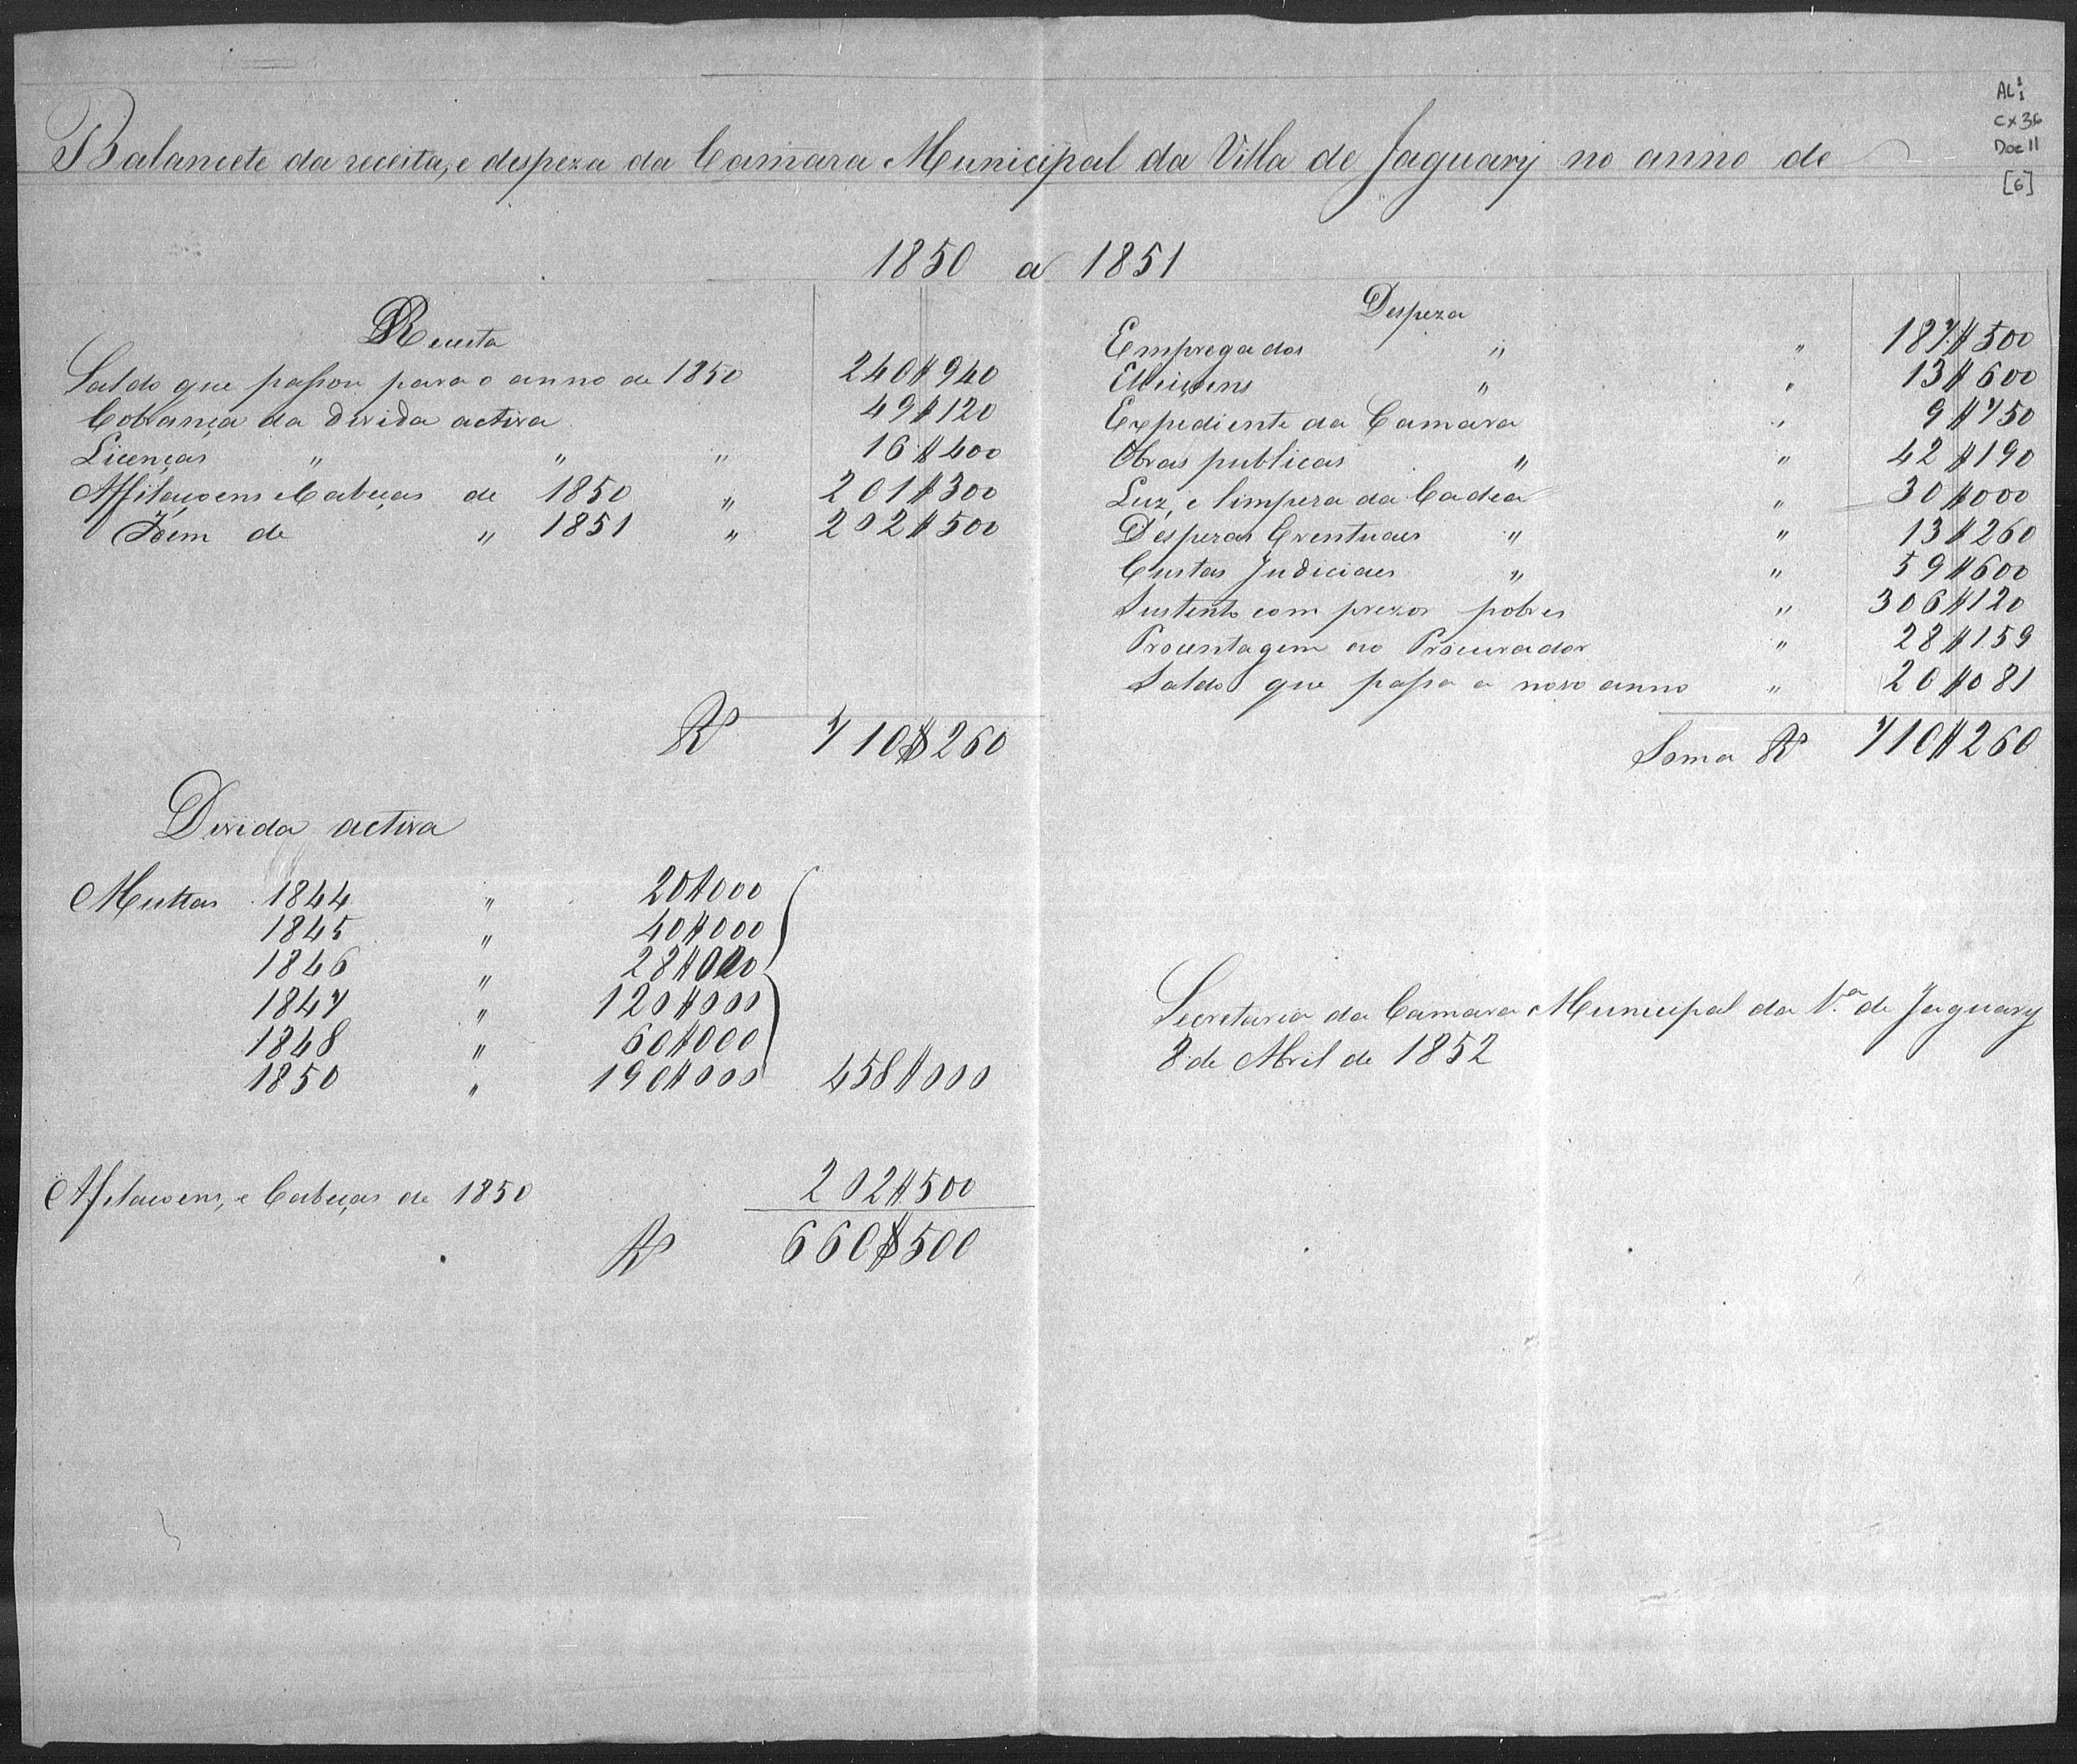 AL:1
CX36
Doc 11
[6]
Balancete da receita, e despeza da Camara Municipal da Villa de Jaguary no anno de
1850 a 1851
Receita
Saldo que passou para o anno de 1850 240$940
Cobrança da Divida activa 49$120
Licenças " " " 16$400
Affilaçoens e Cabeças de 1850 " 201$300
Idem de " 1851 " 202$500
R 710$260
Despeza
Empregados " " 187$500
Elleiçoens " " 13$600
Expediente da Camara " 9$750
Obras publicas " " 42$190
Luz, e limpeza da Cadea " 30$000
Despezas Eventuaes " " 13$260
Custas Judiciaes " " 59$600
Sustento com prezos pobres " 306$120
Procentagem ao Procurador " 28$159
Saldo que passa a novo anno " 20$081
Soma R 710$260
Divida activa
Multas 1844 " 20$000
1845 " 40$000
1846 " 28$000
1847 " 120$000
1848 " 60$000
1850 " 190$000 458$000
Afilaçoens, e Cabeças de 1850 202$500
R 660$500
Secretaria da Camara Municipal da V.ª de Jaguary
8 de Abril de 1852